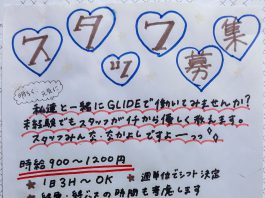 スタッフ募集
明るく、元気に
私達と一緒にGLIDEで働いてみませんか?
未経験でもスタッフが1から優しく教えます。
スタッフみんな、なかよしですよーっっ
時給900〜1200円
★1日3H〜OK ★週単位でシフト決定
の時間も考慮します